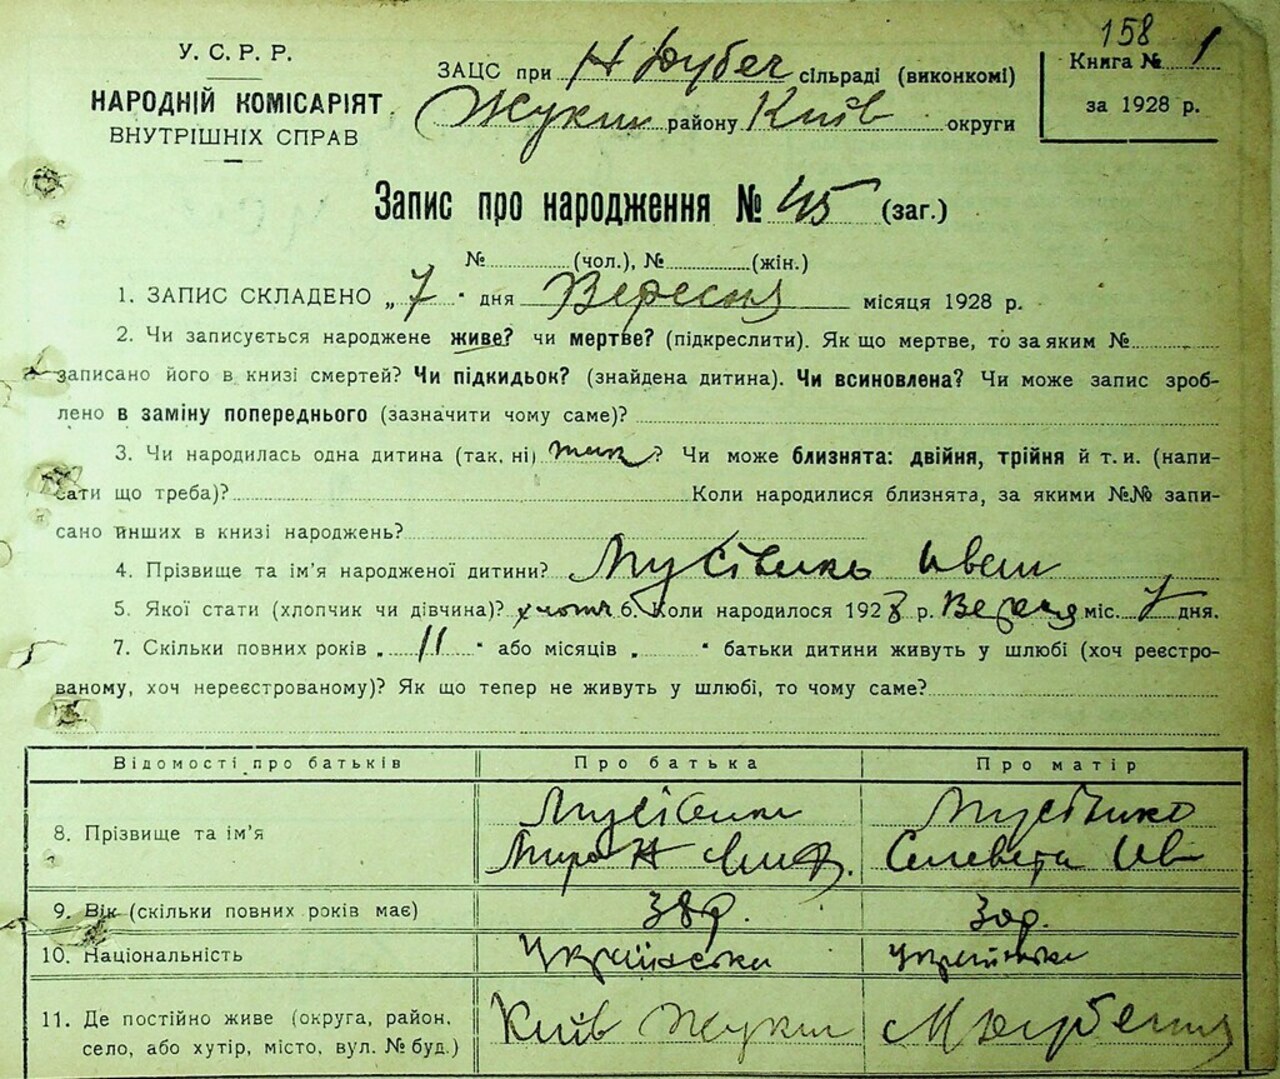 158
У. С. Р. Р.
НАРОДНІЙ КОМІСАРІЯТ
ВНУТРІШНІХ СПРАВ
ЗАЦС при сільраді (виконкомі)
Жукин району Київ округи
Книга № 1
за 1928 р.
Запис про народження № 45 (заг.)
№ (чол.), № (жін.)
1. ЗАПИС СКЛАДЕНО „ 7 " дня Вересня місяця 1928 р.
2. Чи записується народжене живе? чи мертве? (підкреслити). Як що мертве, то за яким №
записано його в книзі смертей? Чи підкидьок? (знайдена дитина). Чи всиновлена? Чи може запис зроб-
лено в заміну попереднього (зазначити чому саме)?
3. Чи народилась одна дитина (так, ні) так? Чи може близнята: двійня, трійня й т. и. (напи-
сати що треба)? Коли народилися близнята, за якими №№ запи-
сано инших в книзі народжень?
4. Прізвище та ім'я народженої дитини? Мусієнко Иван
5. Якої стати (хлопчик чи дівчина)? 6. Коли народилося 1928 р. Вересня міс. 7 дня.
7. Скільки повних років „ 11 " або місяців „ " батьки дитини живуть у шлюбі (хоч реєстро-
ваному, хоч нереєстрованому)? Як що тепер не живуть у шлюбі, то чому саме?
Відомості про батьків Про батька Про матір
8. Прізвище та ім'я
Мусієнко Мусієнко
Мирон Ив
9. Вік (скільки повних років має) 38 р. 30 р.
10. Національність Українська Українська
11. Де постійно живе (округа, район,
село, або хутір, місто, вул. № буд.)
Київ Жукин